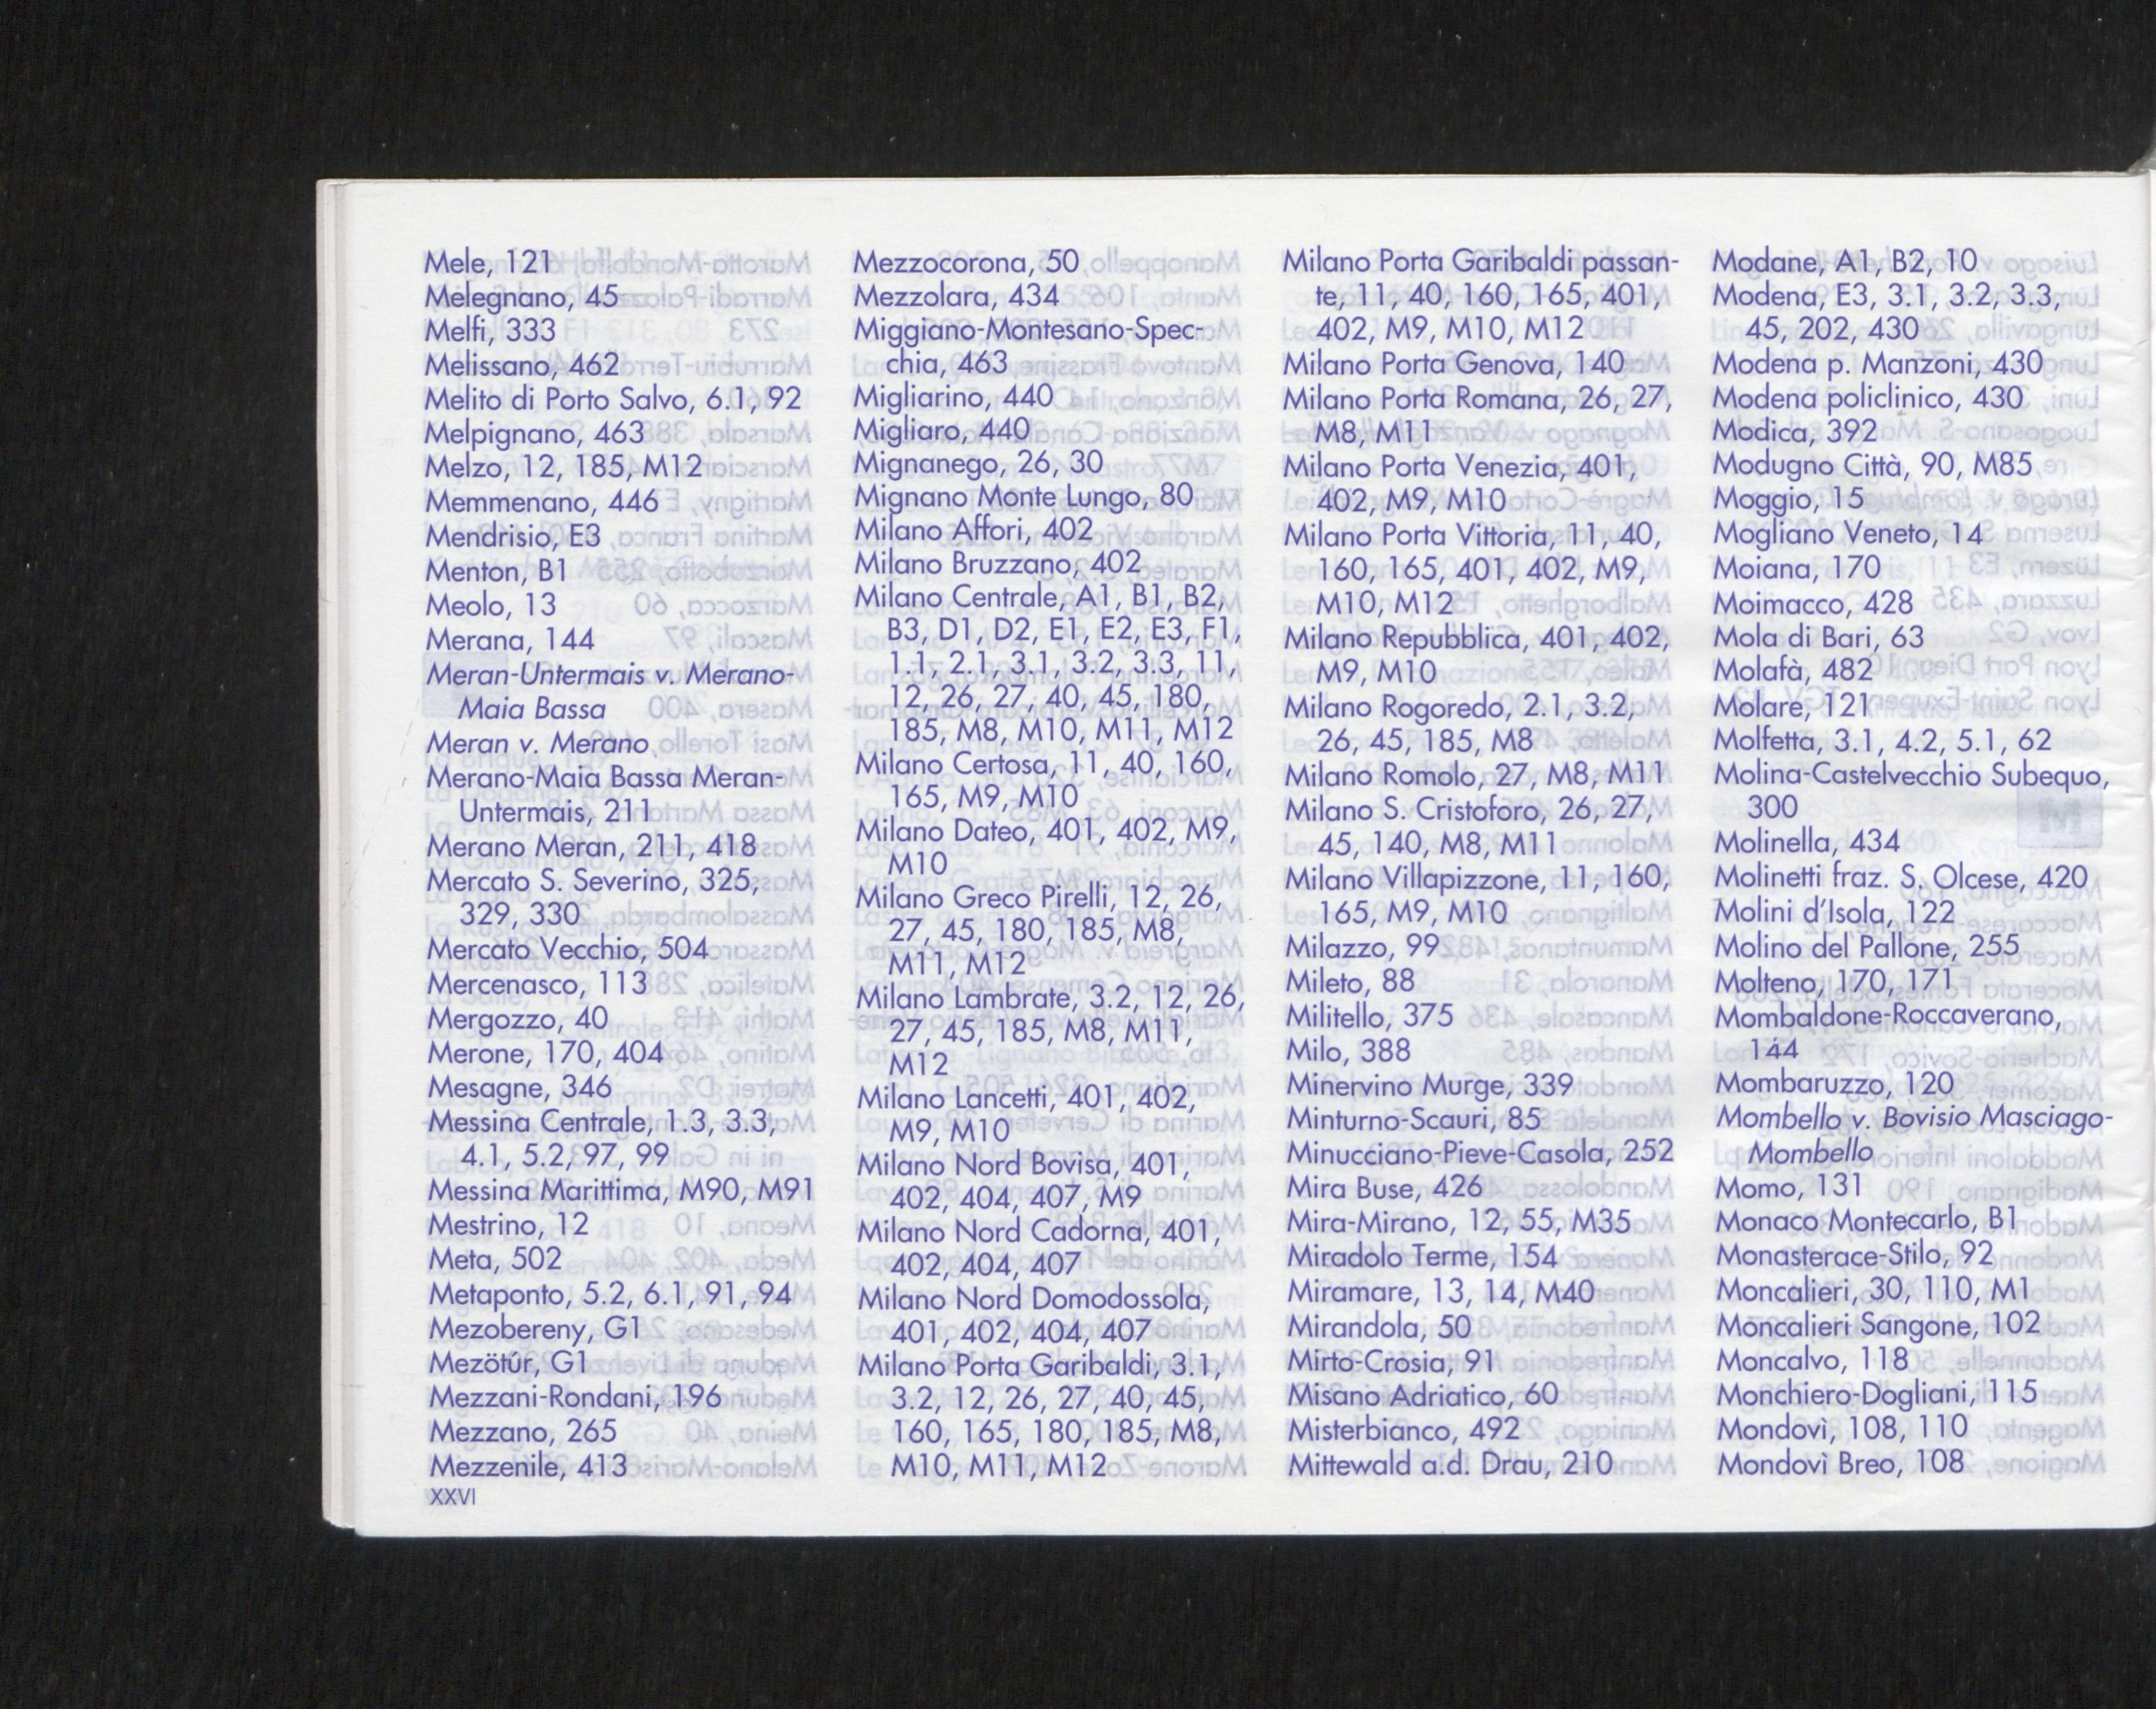 Mele, 121
Melegnano, 45
Melfi, 333
Melissano, 462
Melito di Porto Salvo, 6.1, 92
Melpignano, 463
Melzo, 12, 185, M12
Memmenano, 446
Mendrisio, E3
Menton, B1
Meolo, 13
Merana, 144
Meran-Untermais v. Merano-
Maia Bassa
Meran v. Merano
Merano-Maia Bassa Meran-
Untermais, 211
Merano Meran, 211, 418
Mercato S. Severino, 325,
329, 330
Mercato Vecchio, 504
Mercenasco, 113
Mergozzo, 40
Merone, 170, 404
Mesagne, 346
Messina Centrale, 1.3, 3.3,
4.1, 5.2, 97, 99
Messina Marittima, M90, M91
Mestrino, 12
Meta, 502
Metaponto, 5.2, 6.1, 91, 94
Mezobereny, G1
Mezötúr, G1
Mezzani-Rondani, 196
Mezzano, 265
Mezzenile, 413
XXVI
Mezzocorona, 50
Mezzolara, 434
Miggiano-Montesano-Spec-
chia, 463
Migliarino, 440
Migliaro, 440
Mignanego, 26, 30
Mignano Monte Lungo, 80
Milano Affori, 402
Milano Bruzzano, 402
Milano Centrale, A1, B1, B2,
B3, D1, D2, E1, E2, E3, F1,
1.1, 2.1, 3.1, 3.2, 3.3, 11,
12, 26, 27, 40, 45, 180,
185, M8, M10, M11, M12
Milano Certosa, 11, 40, 160,
165, M9, M10
Milano Dateo, 401, 402, M9,
M10
Milano Greco Pirelli, 12, 26,
27, 45, 180, 185, M8,
M11, M12
Milano Lambrate, 3.2, 12, 26,
27, 45, 185, M8, M11,
M12
Milano Lancetti, 401, 402,
M9, M10
Milano Nord Bovisa, 401,
402, 404, 407, M9
Milano Nord Cadorna, 401,
402, 404, 407
Milano Nord Domodossola,
401, 402, 404, 407
Milano Porta Garibaldi, 3.1,
3.2, 12, 26, 27, 40, 45,
160, 165, 180, 185, M8,
M10, M11, M12
Milano Porta Garibaldi passan-
te, 11, 40, 160, 165, 401,
402, M9, M10, M12
Milano Porta Genova, 140
Milano Porta Romana, 26, 27,
M8, M11
Milano Porta Venezia, 401,
402, M9, M10
Milano Porta Vittoria, 11, 40,
160, 165, 401, 402, M9,
M10, M12
Milano Repubblica, 401, 402,
M9, M10
Milano Rogoredo, 2.1, 3.2,
26, 45, 185, M8
Milano Romolo, 27, M8, M11
Milano S. Cristoforo, 26, 27,
45, 140, M8, M11
Milano Villapizzone, 11, 160,
165, M9, M10
Milazzo, 99
Mileto, 88
Militello, 375
Milo, 388
Minervino Murge, 339
Minturno-Scauri, 85
Minucciano-Pieve-Casola, 252
Mira Buse, 426
Mira-Mirano, 12, 55, M35
Miradolo Terme, 154
Miramare, 13, 14, M40
Mirandola, 50
Mirto-Crosia, 91
Misano Adriatico, 60
Misterbianco, 492
Mittewald a.d. Drau, 210
Modane, A1, B2, 10
Modena, E3, 3.1, 3.2, 3.3,
45, 202, 430
Modena p. Manzoni, 430
Modena policlinico, 430
Modica, 392
Modugno Città, 90, M85
Moggio, 15
Mogliano Veneto, 14
Moiana, 170
Moimacco, 428
Mola di Bari, 63
Molafà, 482
Molare, 121
Molfetta, 3.1, 4.2, 5.1, 62
Molina-Castelvecchio Subequo,
300
Molinella, 434
Molinetti fraz. S. Olcese, 420
Molini d'Isola, 122
Molino del Pallone, 255
Molteno, 170, 171
Mombaldone-Roccaverano,
144
Mombaruzzo, 120
Mombello v. Bovisio Masciago-
Mombello
Momo, 131
Monaco Montecarlo, B1
Monasterace-Stilo, 92
Moncalieri, 30, 110, M1
Moncalieri Sangone, 102
Moncalvo, 118
Monchiero-Dogliani, 115
Mondovì, 108, 110
Mondovì Breo, 108